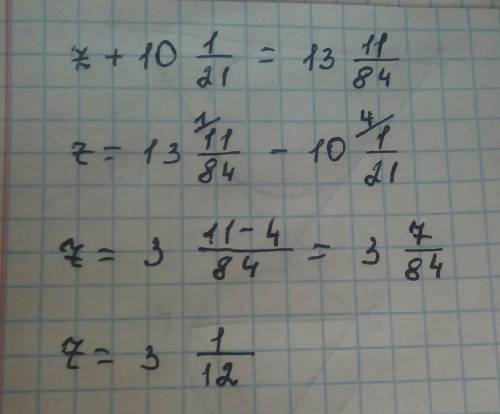 z + 10 1/21 = 13 11/84
z = 13 11/84 ^1/ - 10 1/21 ^4/
z = 3 (11-4)/84 = 3 7/84
z = 3 1/12